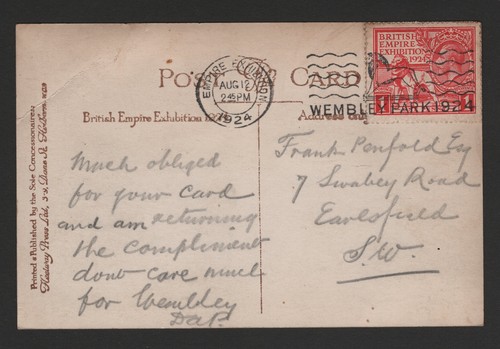 POST CARD
British Empire Exhibition 1924
Address only
EMPIRE EXHIBITION
AUG 12
2 45 PM
1924
WEMBLEY PARK 1924
BRITISH
EMPIRE
EXHIBITION
1924
Much obliged
for your card
and am returning
the compliment
dont care much
for Wembley
Frank Penfold Esq
7 Swabey Road
Earlsfield
S.W.
Printed & Published by the Sole Concessionnaires
Fleetway Press Ltd, 3-9, Dane St. Holborn. WC1